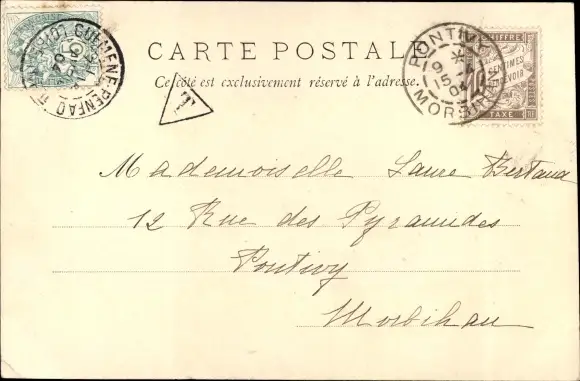 CARTE POSTALE
Ce côté est exclusivement réservé à l'adresse.
T
GUÉMENÉ-PENFAO
PONTIVY
9 *
15 -4
04
MORBIHAN
CHIFFRE
CENTIMES
TAXE
Mademoiselle Laure Bertaud
12 Rue des Pyramides
Pontivy
Morbihan